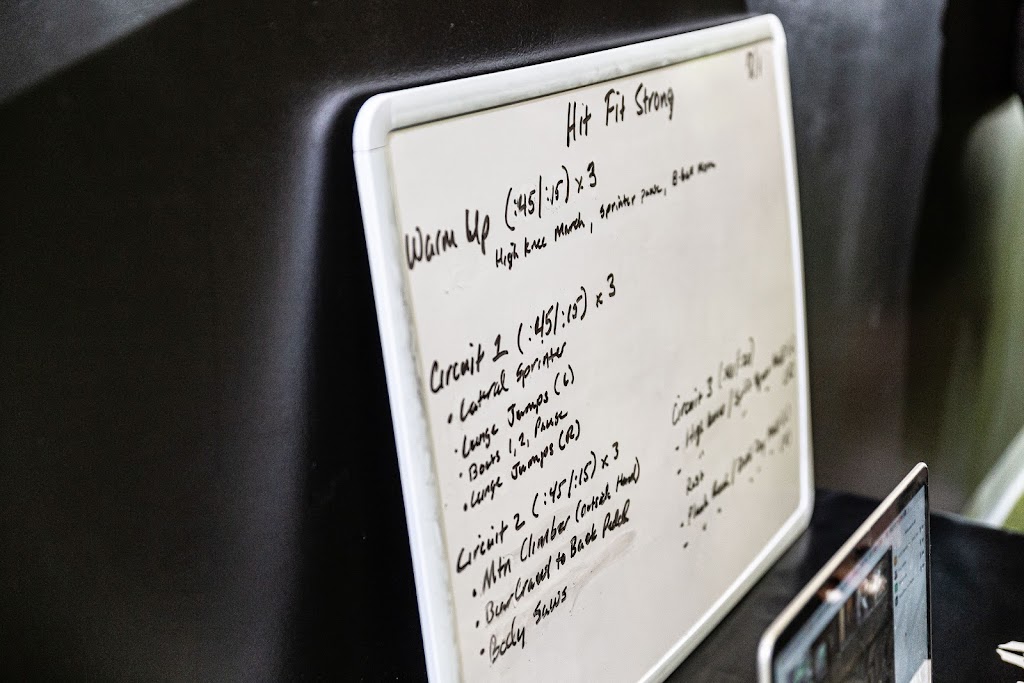 8/1
Hit Fit Strong
Warm Up (:45/:15) x 3
High Knee March, Sprinter Pause,
Circuit 1 (:45/:15) x 3
• Lateral Sprinter
• Lunge Jumps (L)
• Boats 1, 2, Pause
• Lunge Jumps (R)
Circuit 2 (:45/:15) x 3
• Mtn Climber (outside Hand)
• Bear Crawl to Back
• Body Saws
Circuit 3
• High knees /
Rest
• Plank